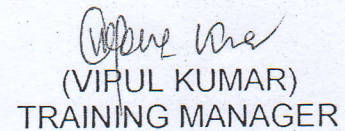 (VIPUL KUMAR)
TRAINING MANAGER